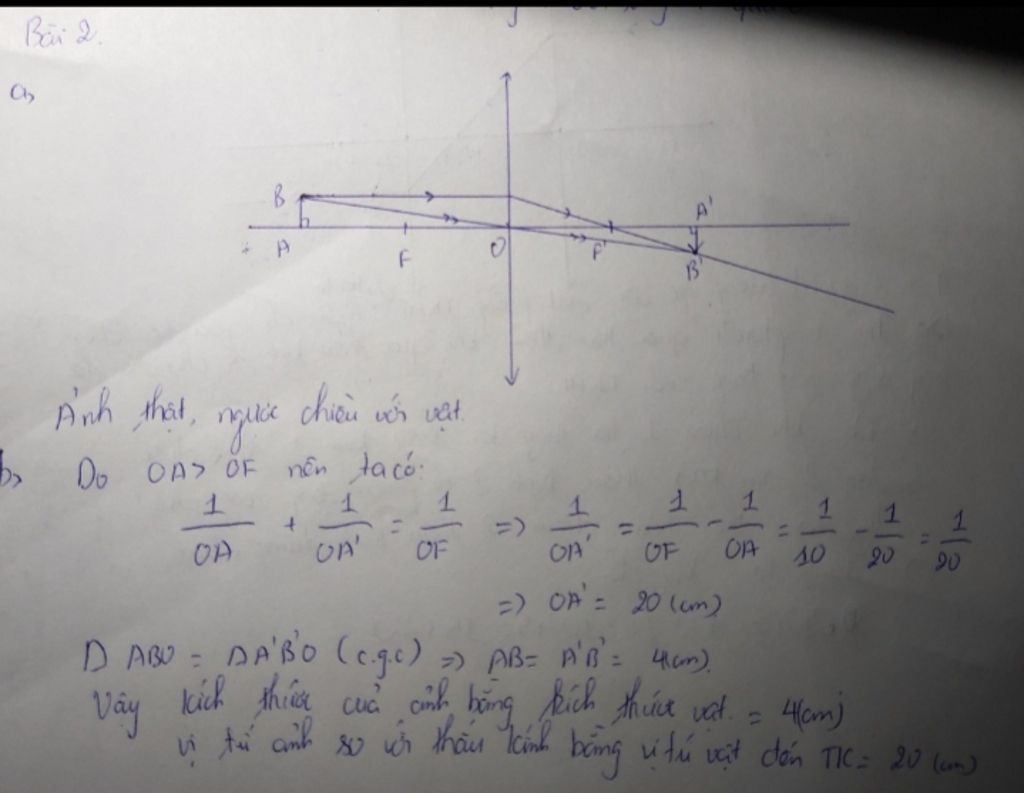 Bài 2.
a,
B
A'
A
F
O
F'
B'
Ảnh thật, ngược chiều với vật.
b, Do OA > OF nên ta có:
1/OA + 1/OA' = 1/OF => 1/OA' = 1/OF - 1/OA = 1/10 - 1/20 = 1/20
=> OA' = 20 (cm)
Δ ABO = Δ A'B'O (c.g.c) => AB = A'B' = 4(cm).
Vậy kích thước của ảnh bằng kích thước vật. = 4(cm)
vị trí ảnh so với thấu kính bằng vị trí vật đến TK = 20 (cm)